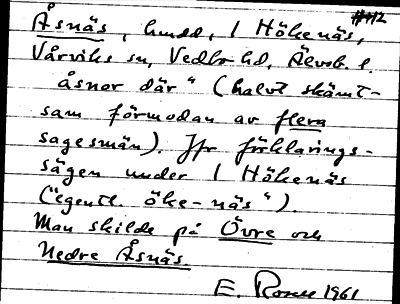 Åsnäs, hundd, 1 Hökenäs,
Vårviks sn, Vedbo hd, Älvsb. l.
åsnor där" (halvt skämt-
sam förmodan av flera
sagesmän). Jfr förklarings-
sägen under 1 Hökenäs
("egentl. öke-näs").
Man skilde på Övre och
Nedre Åsnäs.
E. Rosell 1961